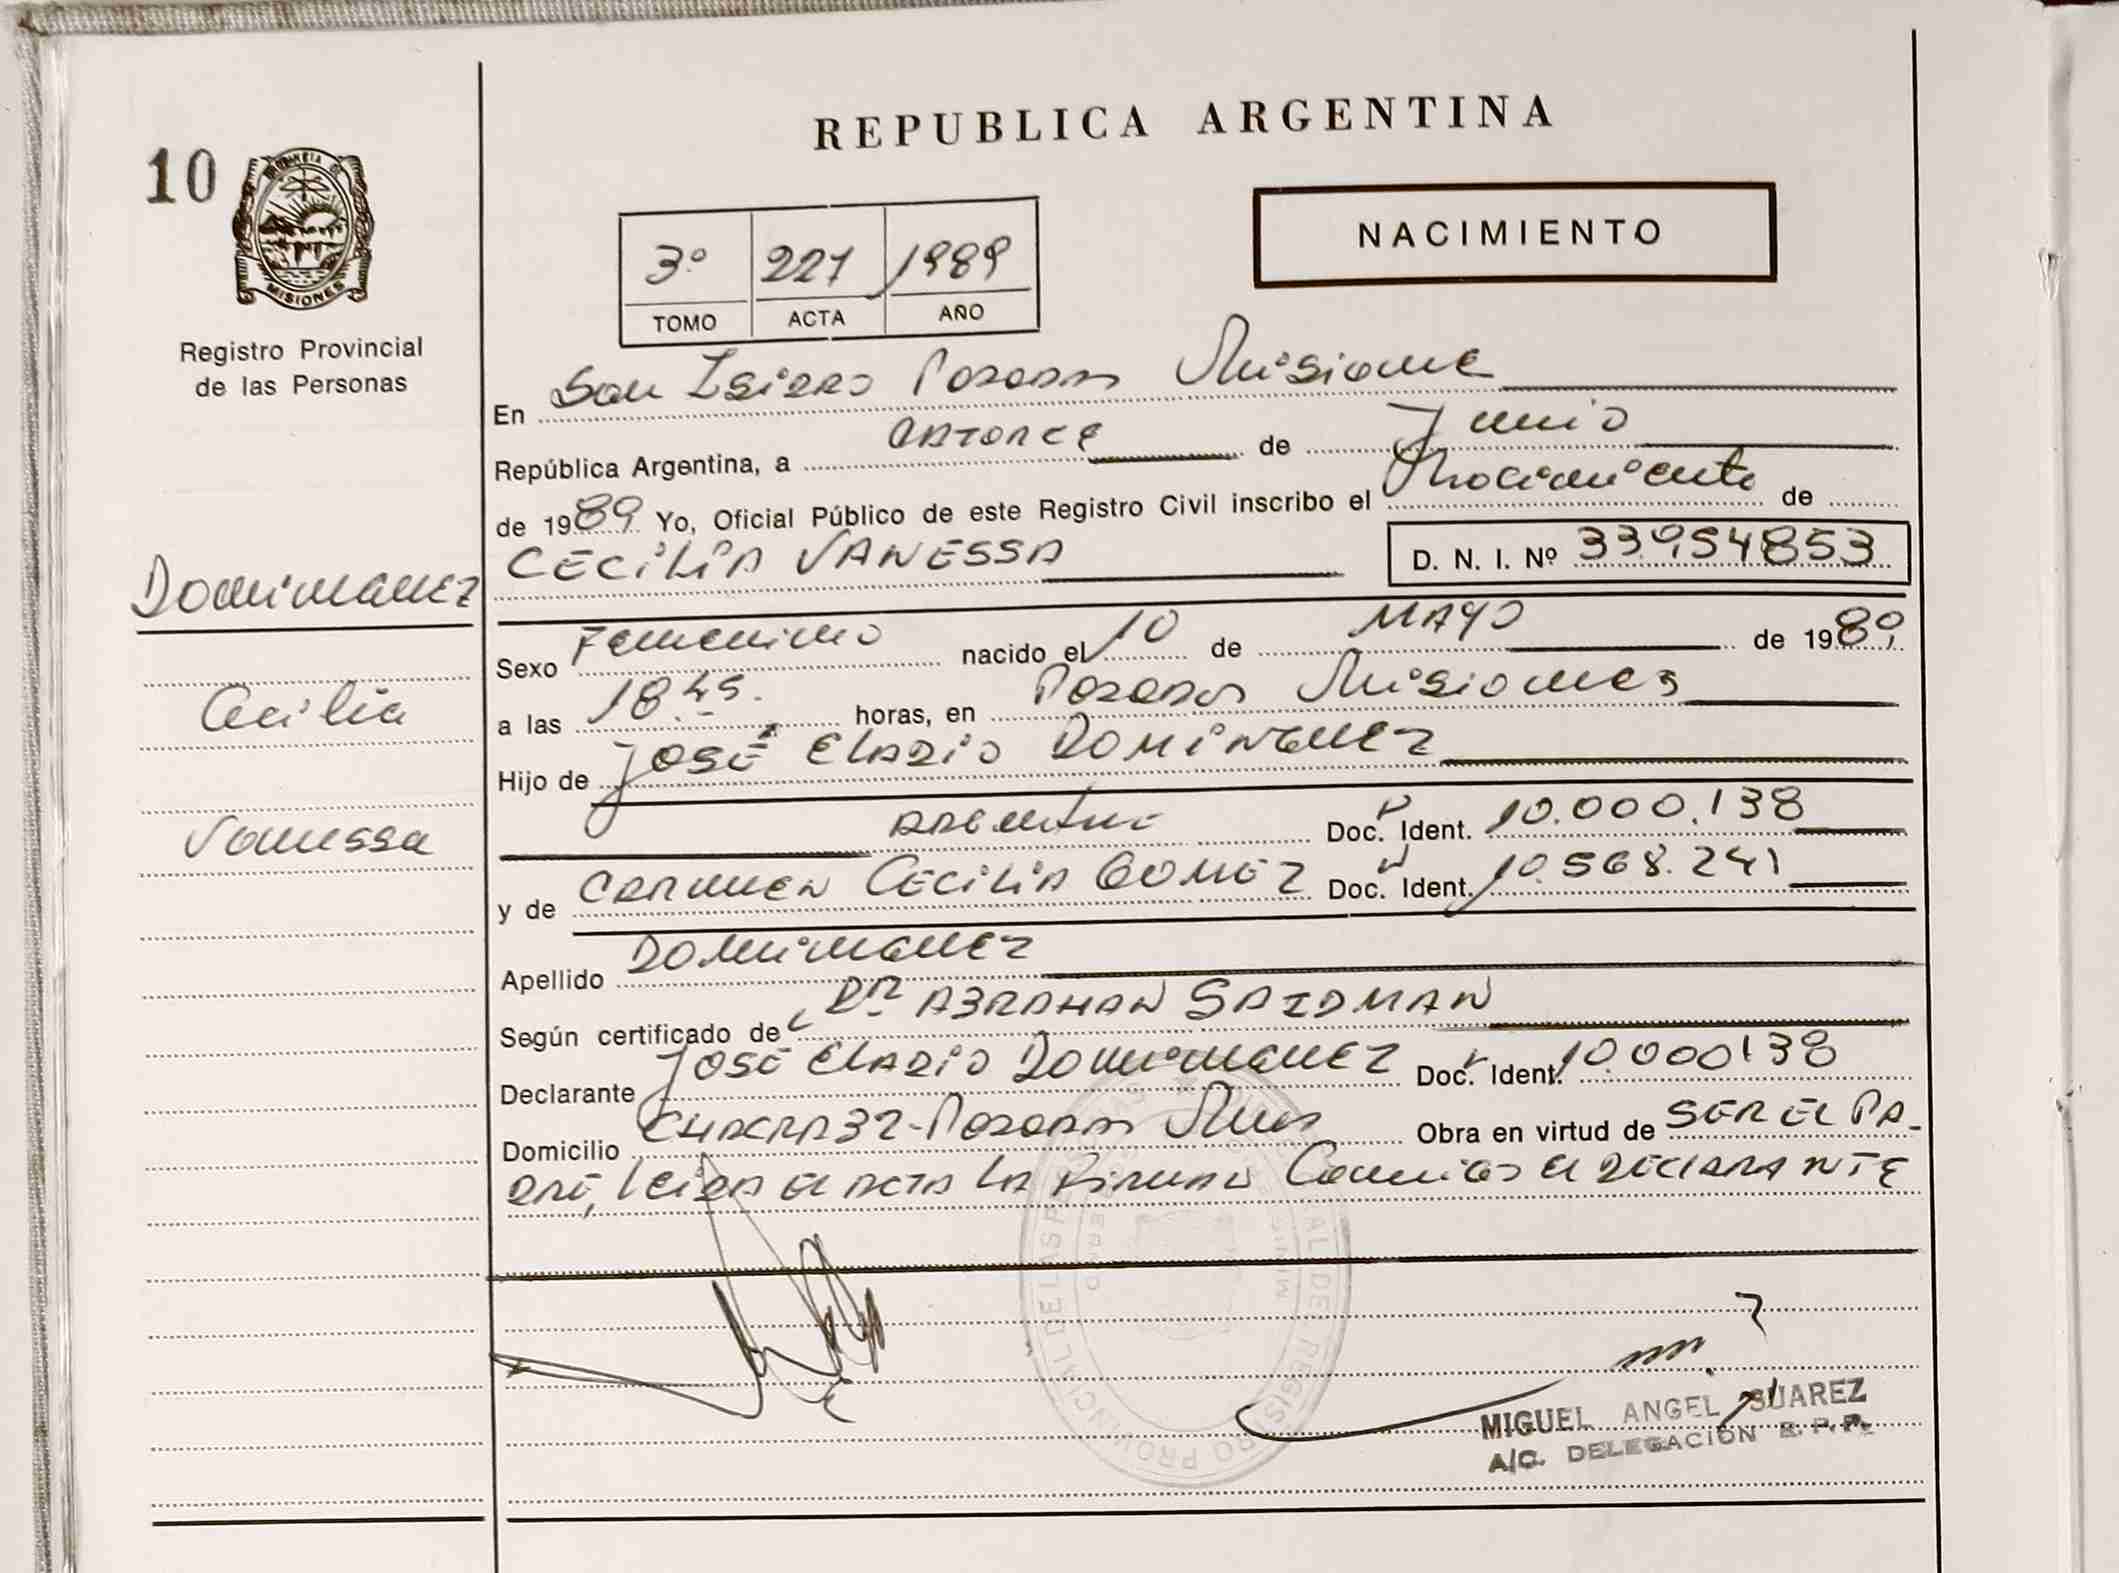 REPUBLICA ARGENTINA
10
PROVINCIA DE
MISIONES
Registro Provincial
de las Personas
NACIMIENTO
3º 221 1989
TOMO ACTA AÑO
En San Isidro Posadas Misiones
República Argentina, a catorce de Junio
de 1989 Yo, Oficial Público de este Registro Civil inscribo el Nacimiento de
CECILIA VANESSA D. N. I. Nº 33.954853
Dominguez
Cecilia
Vanessa
Sexo Femenino nacido el 10 de MAYO de 1989
a las 18.45. horas, en Posadas Misiones
Hijo de JOSÉ ELADIO DOMINGUEZ
Argentino Doc. Ident. 10.000.138
y de CARMEN CECILIA GOMEZ Doc. Ident. 10.568.241
Apellido DOMINGUEZ
Según certificado de Dr ABRAHAN SAIDMAN
Declarante JOSÉ ELADIO DOMINGUEZ Doc. Ident. 10.000138
Domicilio CHACRA 32-Posadas Mnes Obra en virtud de SER EL PA-
DRE, leida el acta la firma Conmigo el DECLARANTE
MIGUEL ANGEL SUAREZ
A/C. DELEGACIÓN R. P. P.